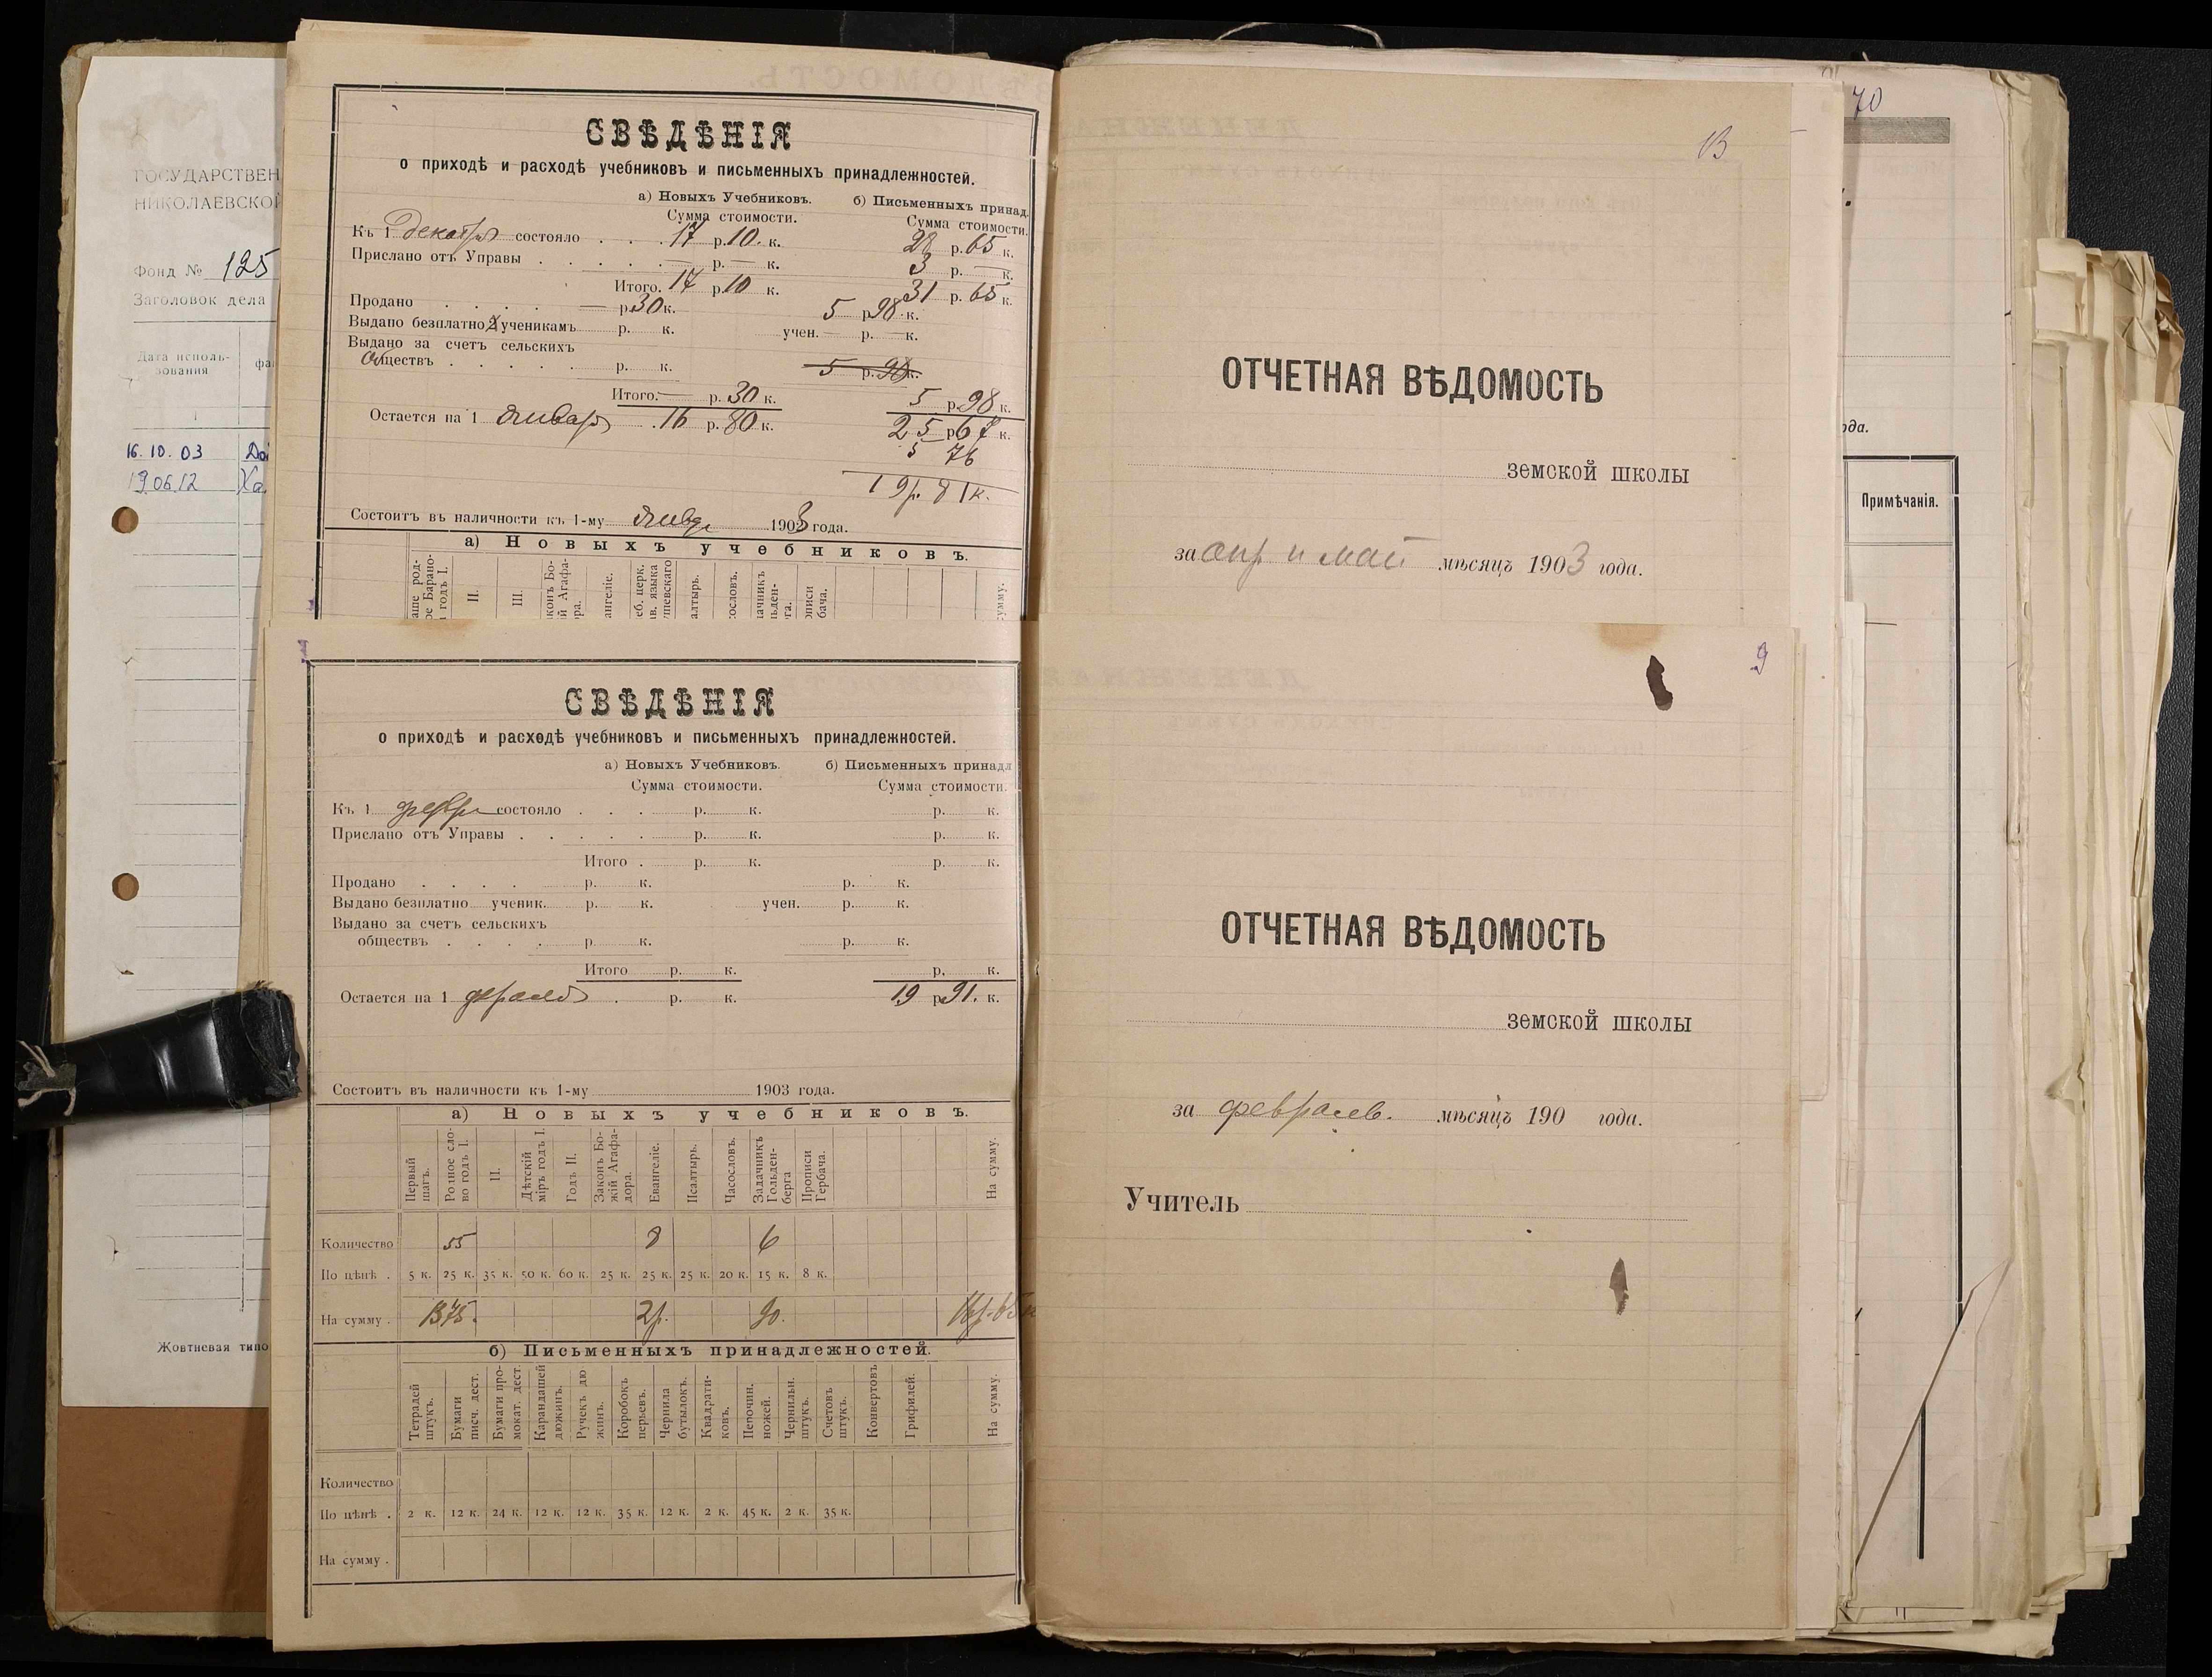 ГОСУДАРСТВЕН
НИКОЛАЕВСКОЙ
Фонд № 125
Заголовок дела
Дата исполь-
зования
1
16.10.03 До
19.06.12 Ха
Жовтневая типо
СВѢДѢНІЯ
о приходѣ и расходѣ учебниковъ и письменныхъ принадлежностей.
а) Новыхъ Учебниковъ. б) Письменныхъ принад.
Сумма стоимости. Сумма стоимости.
Къ 1 декабр состояло . . . 17 р. 10. к. 28 р. 65 к.
Прислано отъ Управы . . . . . — р. — к. 3 р. — к.
Итого. 17 р. 10 к. 31 р. 65 к.
Продано . . . . — р. 30 к. 5 р. 98. к.
Выдано безплатно 2 ученикамъ р. к. учен. — р. — к.
Выдано за счетъ сельскихъ
Обществъ . . . . . р. к. 5 р. 98 к.
Итого. — р. 30 к. 5 р. 98 к.
Остается на 1 январ . 16 р. 80 к. 25 р. 67 к.
5 76
19 р. 81 к.
Состоитъ въ наличности къ 1-му январ 1903 года.
а) Новыхъ учебниковъ.
аше род-
ое Барано-
годъ I.
II.
III.
конъ Бо-
ій Агафа-
ра.
ангеліе.
еб. церк.
ав. языка
алтырь.
сословъ.
ачникъ
льден-
рга.
описи
бача.
сумму.
СВѢДѢНІЯ
о приходѣ и расходѣ учебниковъ и письменныхъ принадлежностей.
а) Новыхъ Учебниковъ. б) Письменныхъ принадл
Сумма стоимости. Сумма стоимости.
Къ 1 февр состояло . . . р. к. р. к.
Прислано отъ Управы . . . . . р. к. р. к.
Итого . р. к. р. к.
Продано . . . . р. к. р. к.
Выдано безплатно ученик. р. к. учен. р. к.
Выдано за счетъ сельскихъ
обществъ . . . . р. к. р. к.
Итого р. к. р. к.
Остается на 1 февраль . р. к. 19 р. 91. к.
Состоитъ въ наличности къ 1-му 1903 года.
а) Новыхъ учебниковъ.
Первый
шагъ.
Родное сло-
во годъ I.
II.
Дѣтскій
міръ годъ I.
Годъ II.
Законъ Бо-
жій Агафа-
дора.
Евангеліе.
Псалтырь.
Часословъ.
Задачникъ
Гольден-
берга
Прописи
Гербача.
На сумму.
Количество 55 8 6
По цѣнѣ . 5 к. 25 к. 35 к. 50 к. 60 к. 25 к. 25 к. 25 к. 20 к. 15 к. 8 к.
На сумму . 13 75. 2р. 90. 16р. 65 к
б) Письменныхъ принадлежностей.
Тетрадей
штукъ.
Бумаги
писч. дест.
Бумаги про-
мокат. дест.
Карандашей
дюжинъ.
Ручекъ дю
жинъ.
Коробокъ
перьевъ.
Чернила
бутылокъ.
Квадрати-
ковъ.
Перочин.
ножей.
Чернильн.
штукъ.
Счетовъ
штукъ.
Конвертовъ
Грифилей.
На сумму.
Количество
По цѣнѣ . 2 к. 12 к. 24 к. 12 к. 12 к. 35 к. 12 к. 2 к. 45 к. 2 к. 35 к.
На сумму .
ОТЧЕТНАЯ ВѢДОМОСТЬ
земской школы
за апр и май мѣсяцъ 1903 года.
9
ОТЧЕТНАЯ ВѢДОМОСТЬ
земской школы
за февраль. мѣсяцъ 190 года.
Учитель
70
ода.
Примѣчанія.